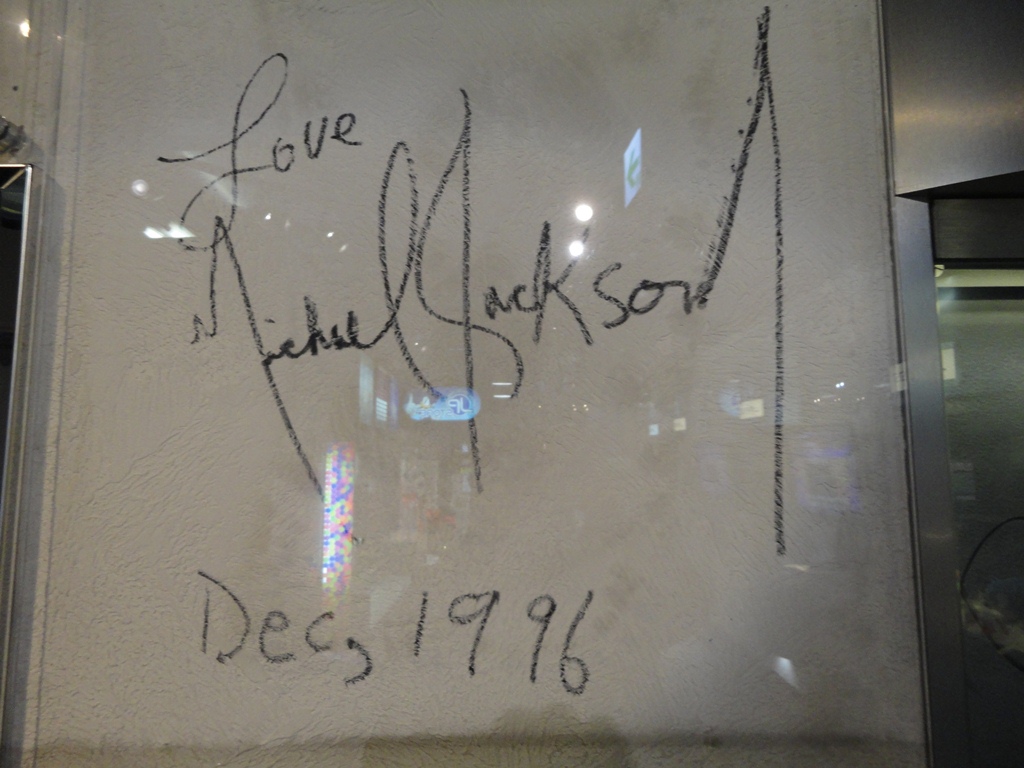 Love
Michael Jackson
Dec, 1996